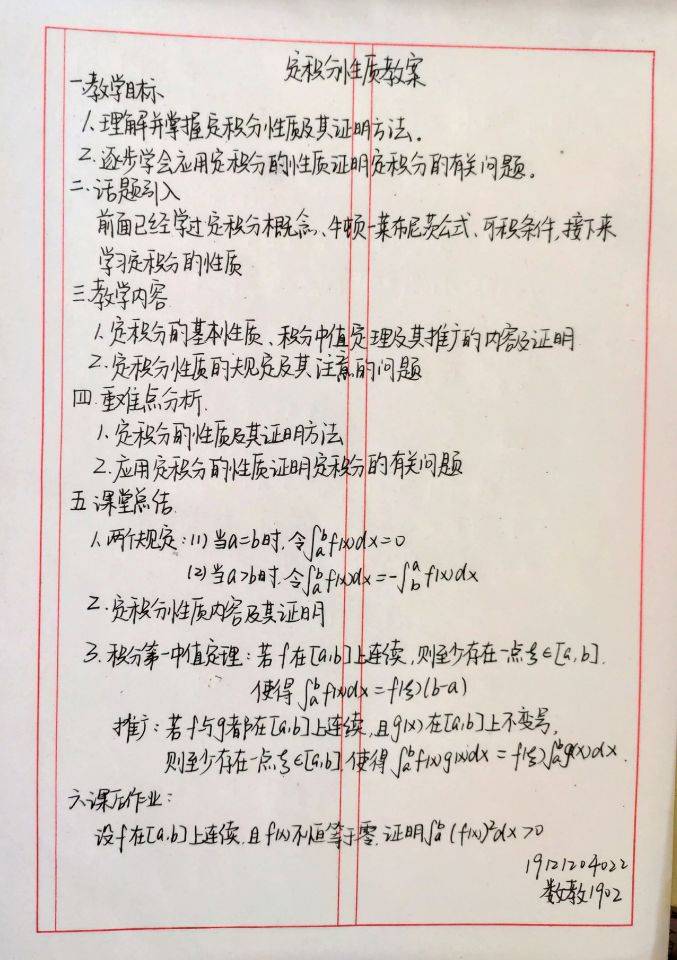 定积分性质教案
一.教学目标
1.理解并掌握定积分性质及其证明方法。
2.逐步学会应用定积分的性质证明定积分的有关问题。
二.话题引入
前面已经学过定积分概念、牛顿-莱布尼茨公式、可积条件,接下来
学习定积分的性质
三.教学内容
1.定积分的基本性质、积分中值定理及其推广的内容及证明
2.定积分性质的规定及其注意的问题
四.重难点分析.
1.定积分的性质及其证明方法
2.应用定积分的性质证明定积分的有关问题
五.课堂总结
1.两个规定:(1)当a=b时,令∫_a^b f(x)dx=0
(2)当a>b时,令∫_a^b f(x)dx=-∫_b^a f(x)dx
2.定积分性质内容及其证明
3.积分第一中值定理:若f在[a,b]上连续,则至少存在一点ξ∈[a,b].
使得∫_a^b f(x)dx=f(ξ)(b-a)
推广:若f与g都在[a,b]上连续,且g(x)在[a,b]上不变号,
则至少存在一点ξ∈[a,b].使得∫_a^b f(x)g(x)dx=f(ξ)∫_a^b g(x)dx.
六.课后作业:
设f在[a,b]上连续.且f(x)不恒等于零,证明∫_a^b (f(x))²dx>0
19121204022
数教1902